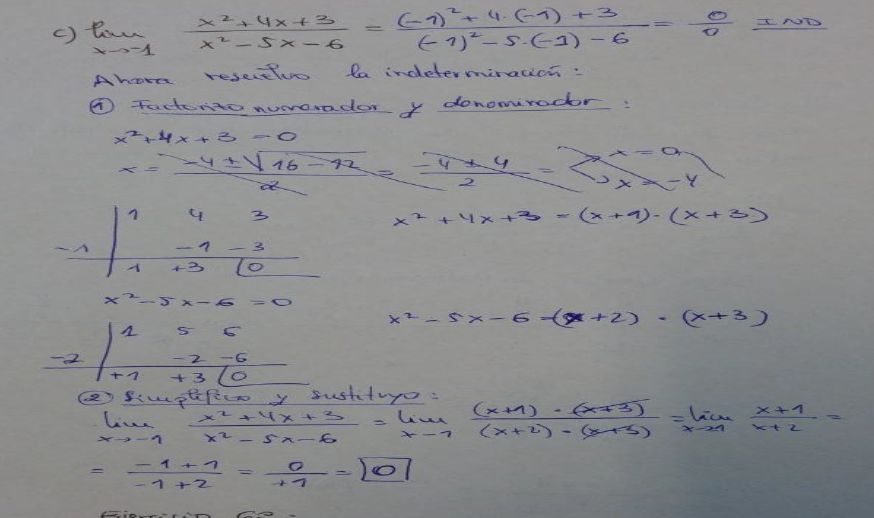 c) lim x→-1 x²+4x+3 / x²-5x-6 = (-1)²+4·(-1)+3 / (-1)²-5·(-1)-6 = 0/0 IND
Ahora resuelvo la indeterminación:
① Factorizo numerador y denominador:
x²+4x+3=0
x = -4±√16-12 / 2 = -4±4 / 2 = x=0
x=-4
1 4 3
x²+4x+3=(x+1)·(x+3)
-1 -1 -3
1 +3 0
x²-5x-6=0
1 5 6
x²-5x-6=(x+2)·(x+3)
-2 -2 -6
+1 +3 0
② Simplifico y sustituyo:
lim x→-1 x²+4x+3 / x²-5x-6 = lim x→-1 (x+1)·(x+3) / (x+2)·(x+3) = lim x→-1 x+1 / x+2 =
= -1+1 / -1+2 = 0 / +1 = 0